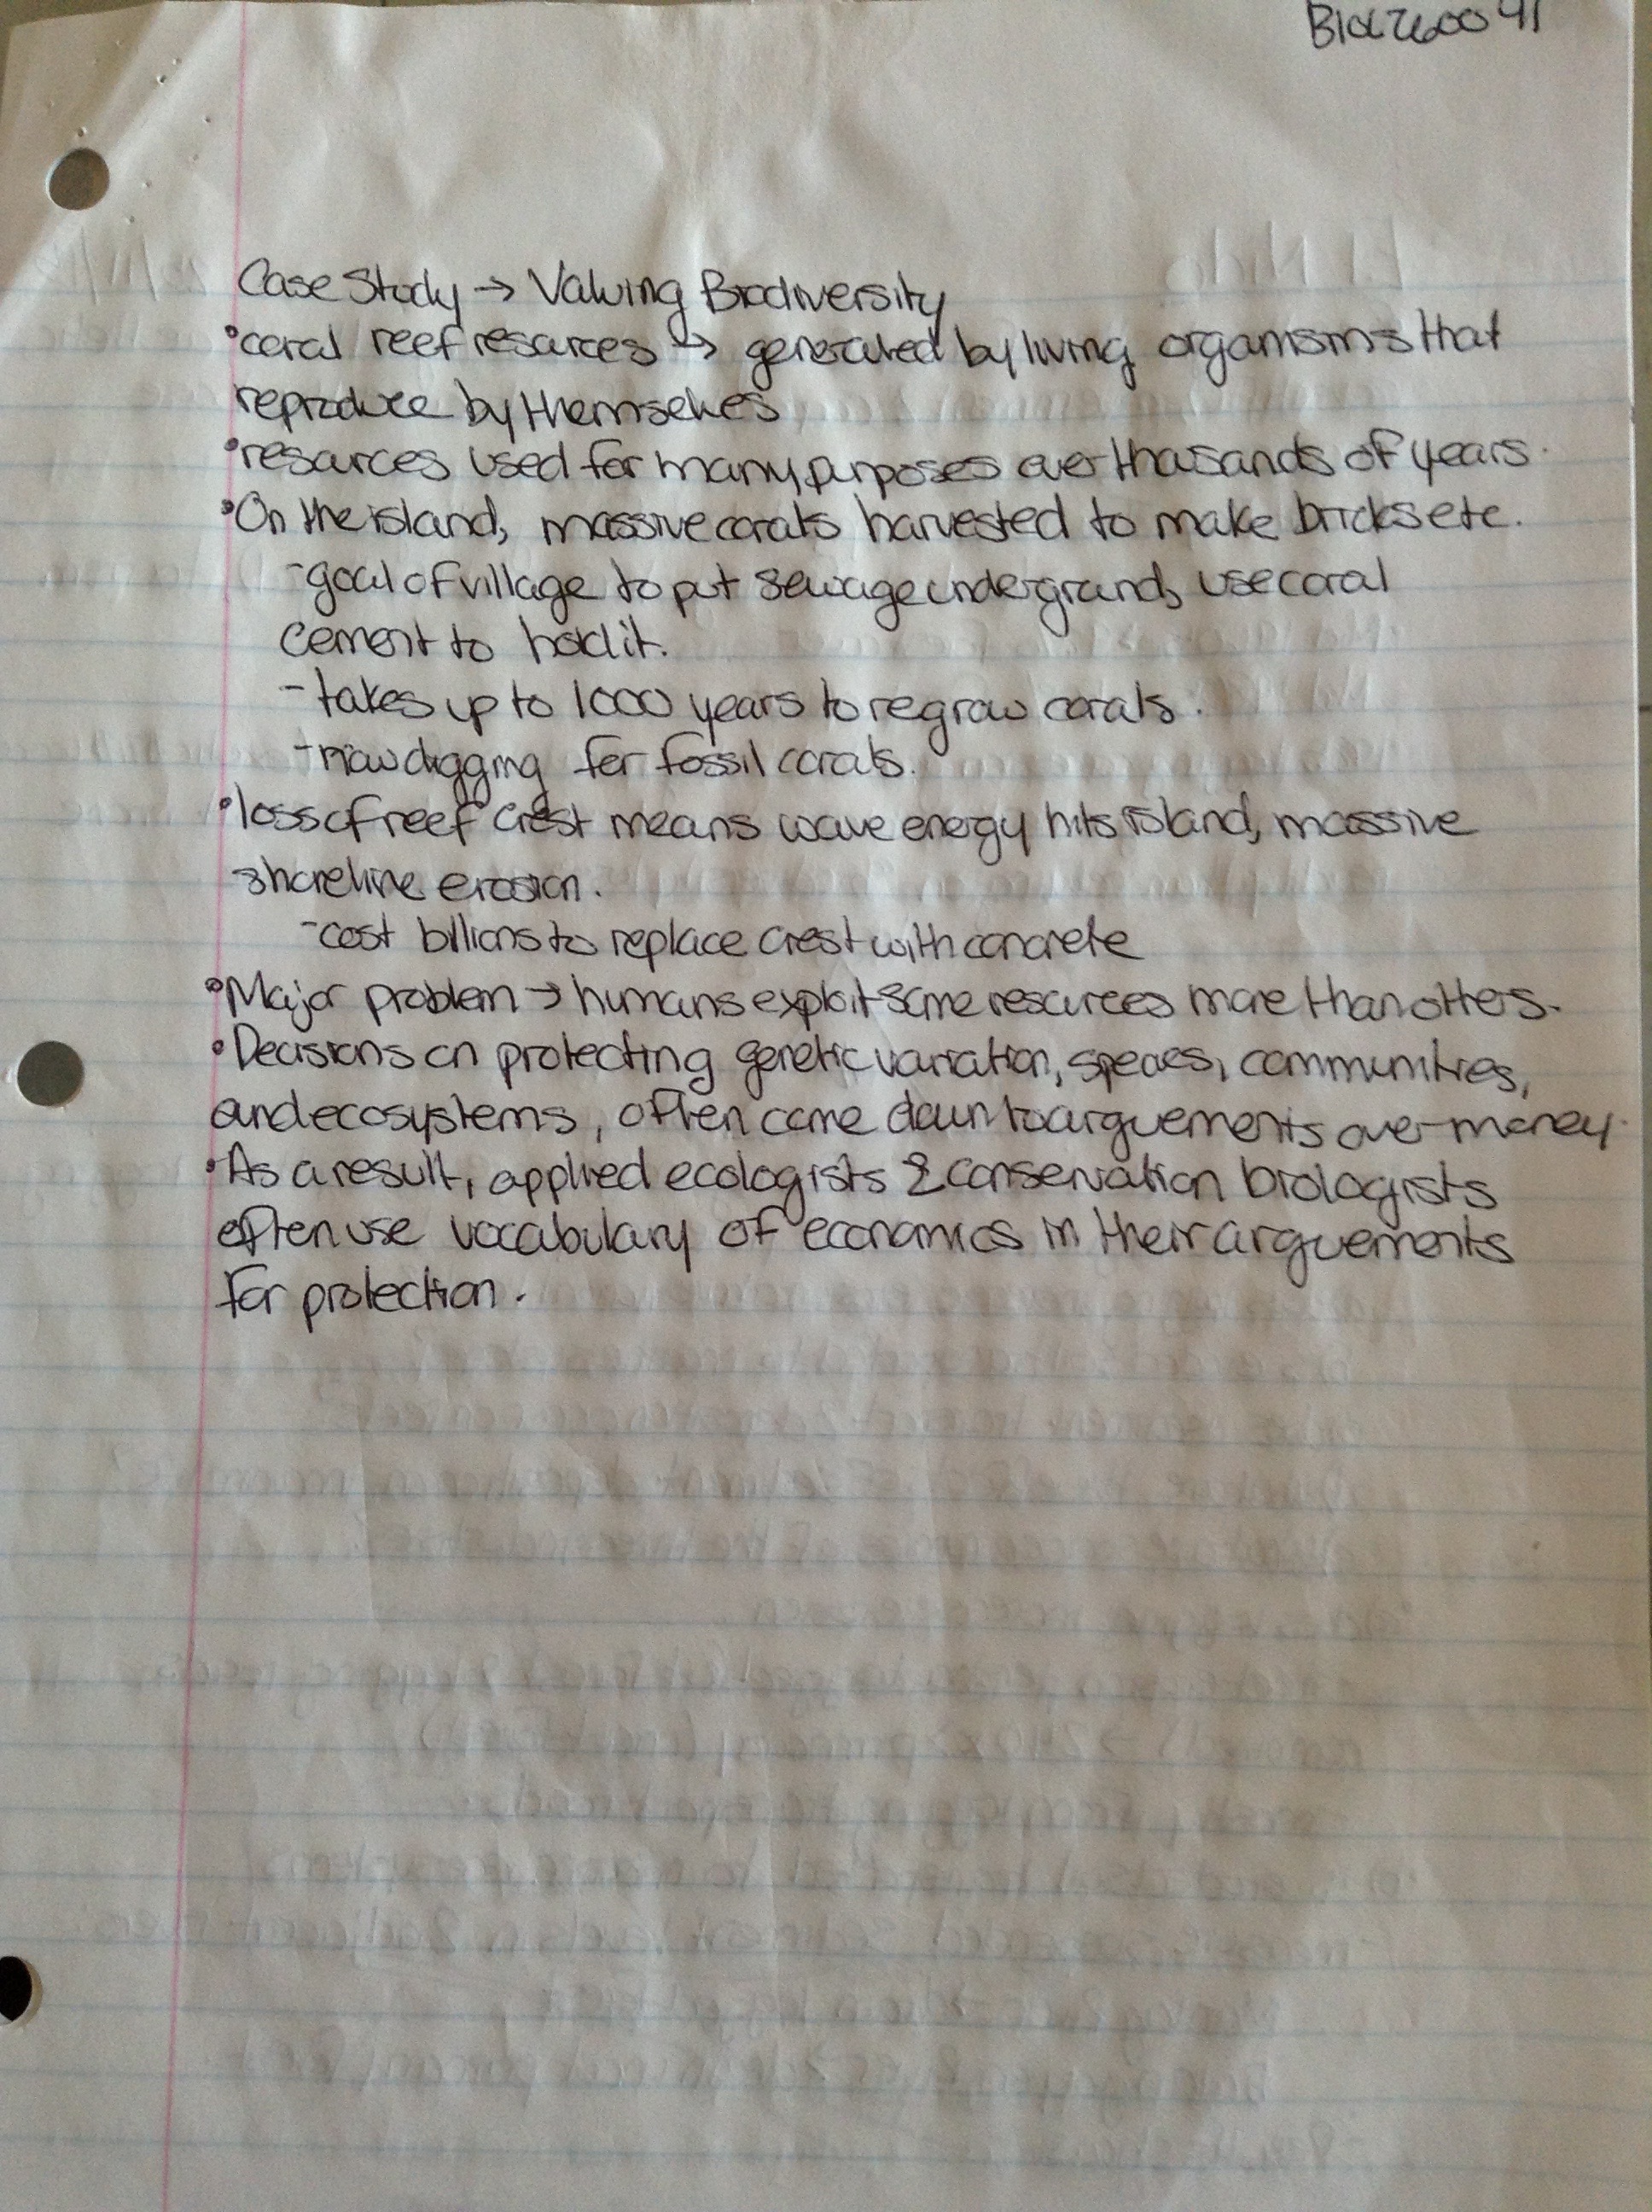 BIOL2600 41
Case Study → Valuing Biodiversity
•coral reef resources → generated by living organisms that
reproduce by themselves
•resources used for many purposes over thousands of years.
•On the island, massive corals harvested to make bricks etc.
-goal of village to put sewage underground, use coral
cement to hold it.
-takes up to 1000 years to regrow corals.
-now digging for fossil corals.
•loss of reef crest means wave energy hits island, massive
shoreline erosion.
-cost billions to replace crest with concrete
•Major problem → humans exploit some resources more than others.
•Decisions on protecting genetic variation, species, communities,
and ecosystems, often come down to arguements over money.
•As a result, applied ecologists & conservation biologists
often use vocabulary of economics in their arguements
for protection.